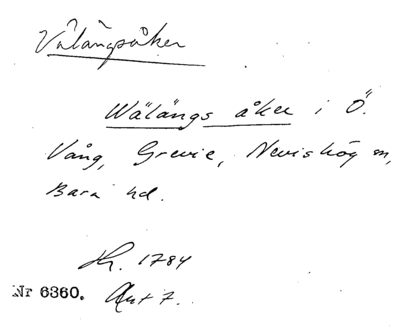 Vålängsåker
Wälängs åker i Ö.
Vång, Grevie, Nevishög sn,
Bara hd.
Lh. 1784
Nr 6360. Akt 7.